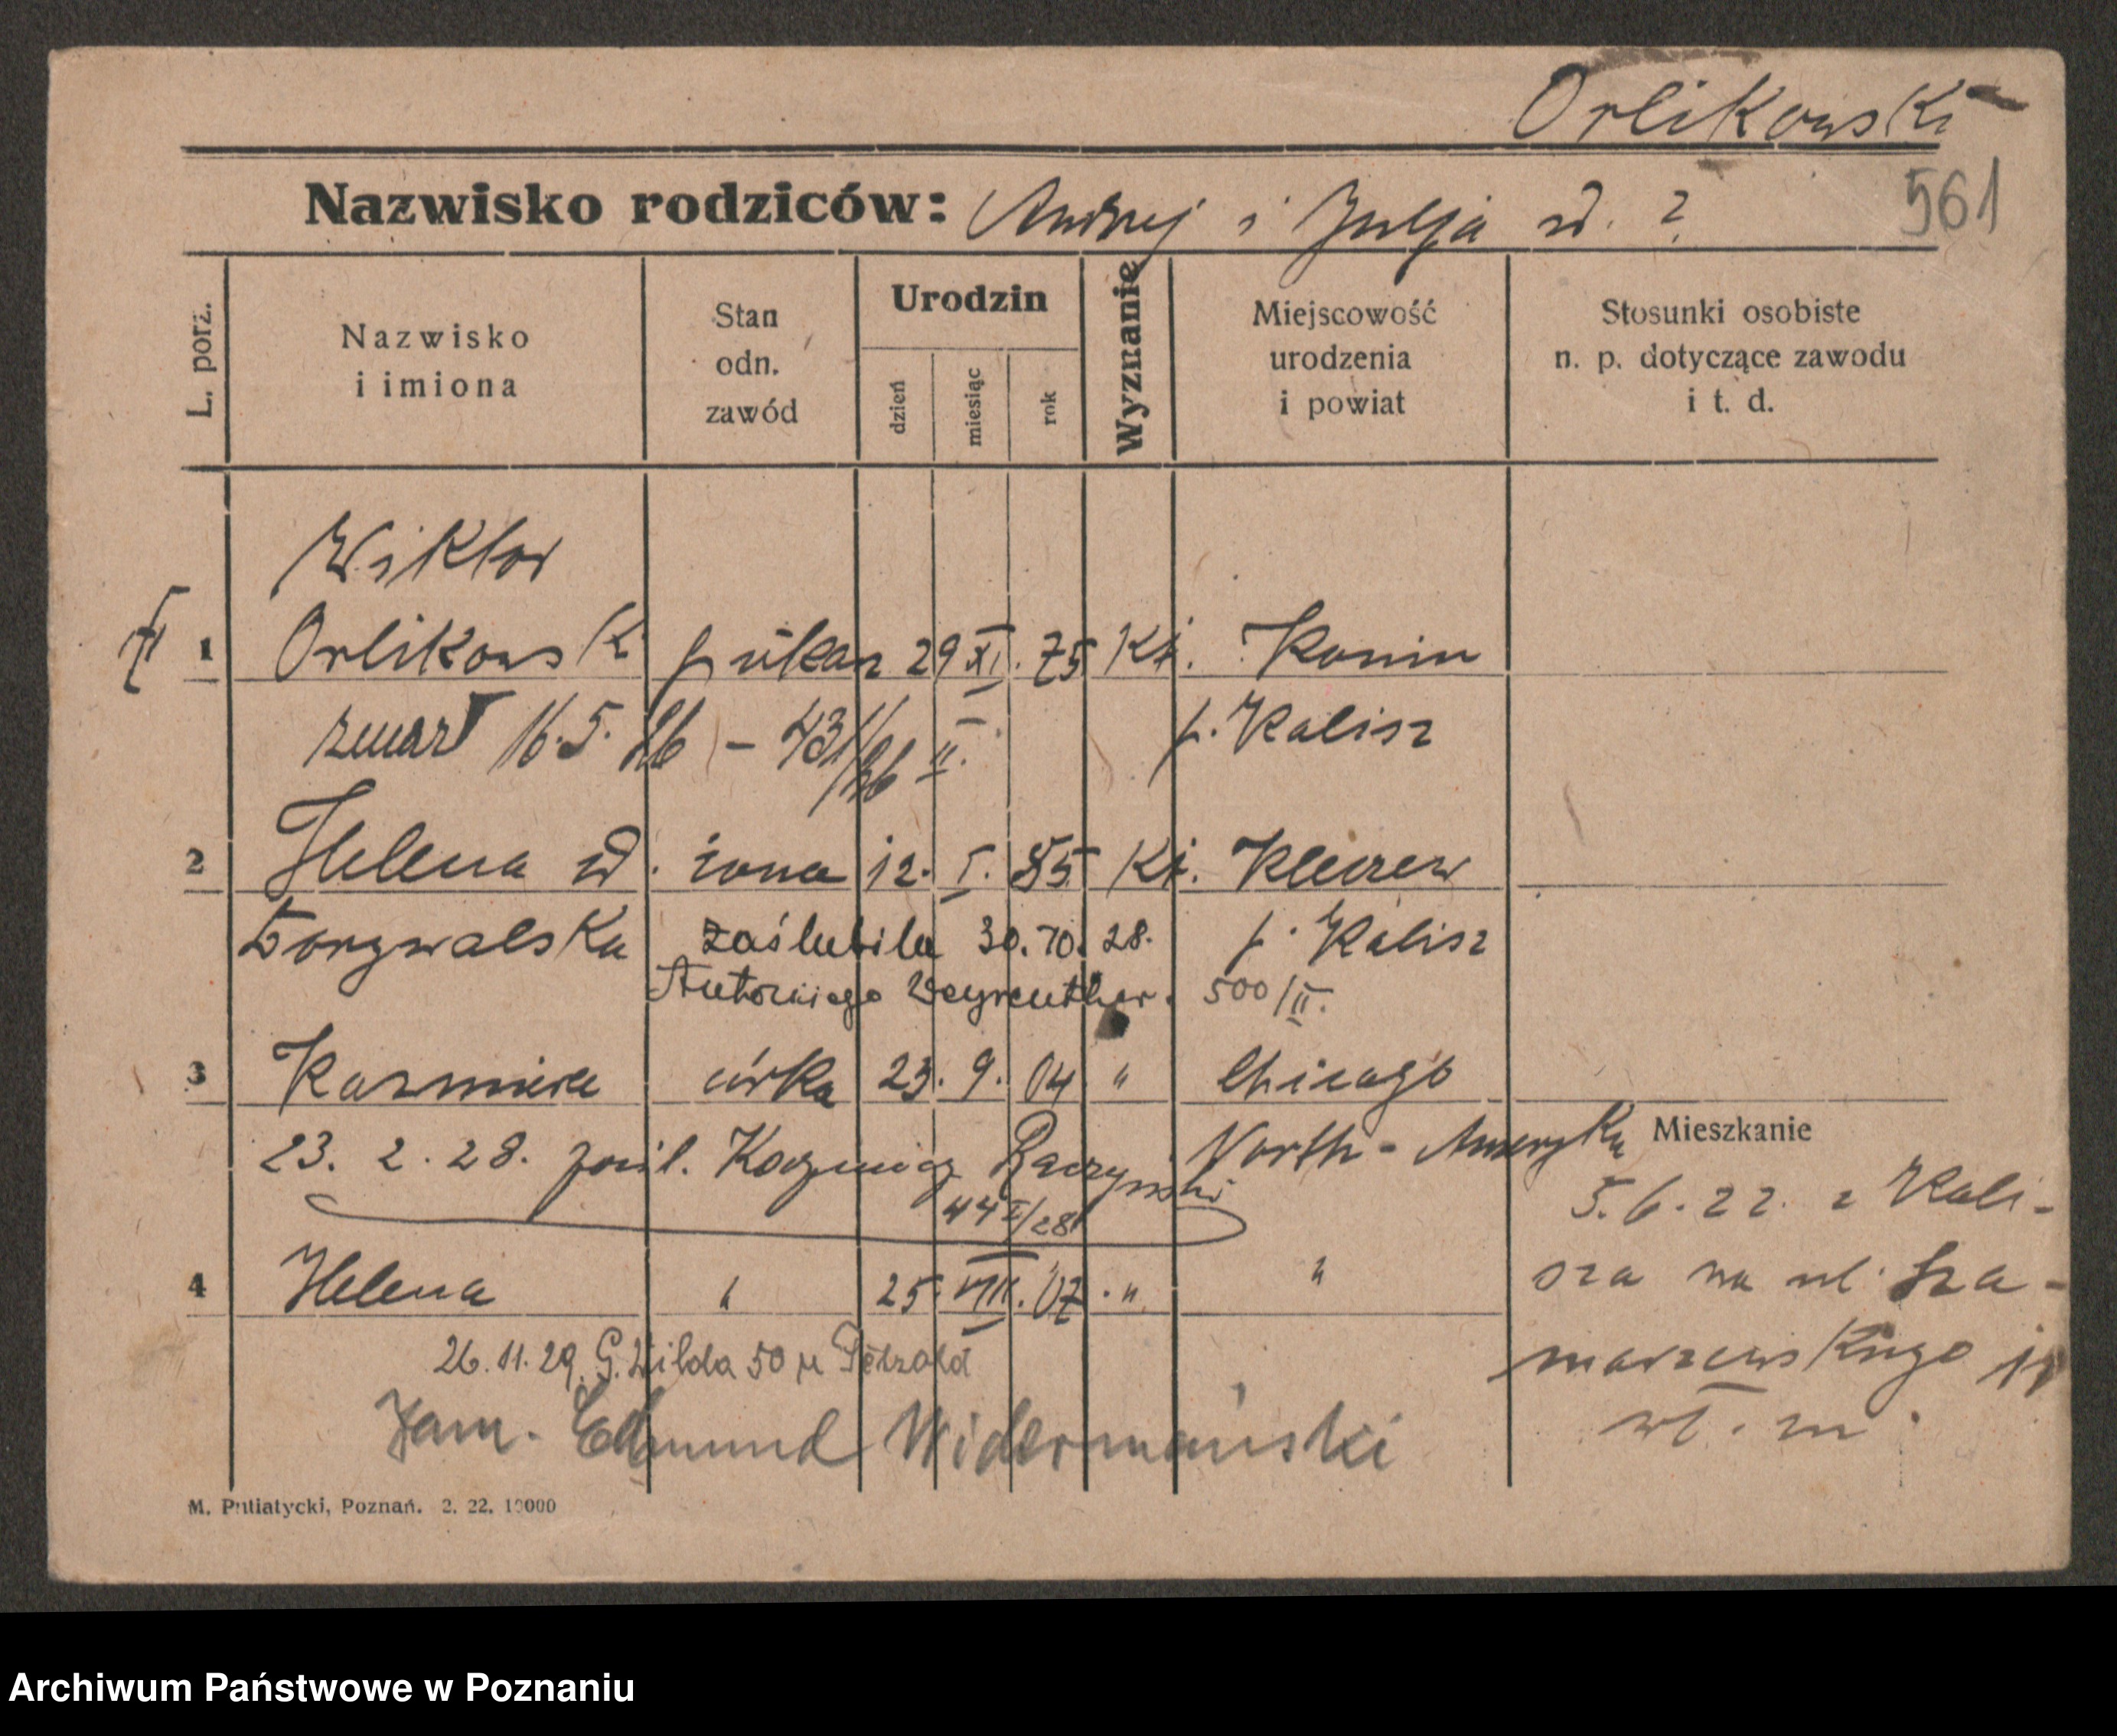 Orlikowski
Nazwisko rodziców: Andrzej i Julja ud. ?
561
L. porz.
Nazwisko
i imiona
Stan
odn.
zawód
Urodzin
dzień
miesiąc
rok
Wyznanie
Miejscowość
urodzenia
i powiat
Stosunki osobiste
n. p. dotyczące zawodu
i t. d.
Wiktor
1 Orlikowski 29 XI. 75 Kt. Konin
zmarł 16.5.26 - 431/26 II. p. Kalisz
2 Helena ud. żona 12. I. 85 Kt. Kleczew
p. Kalisz
zaślubiła 30.10.28.
Antoniego 500/II.
3 Kazmiera córka 23. 9. 04 " Chicago
North-Ameryka
23. 2. 28. zaśl. Kazmierz Raczyński
44 I/28
4 Helena " 25. VIII. 07. " "
26.11.29. G. Wilda 50 u Petzold
Zam. Edmund Widermański
Mieszkanie
5.6.22. z Kali-
sza na ul. Sza-
marzewskiego
wł. m.
M. Putiatycki, Poznań. 2. 22. 10000
Archiwum Państwowe w Poznaniu